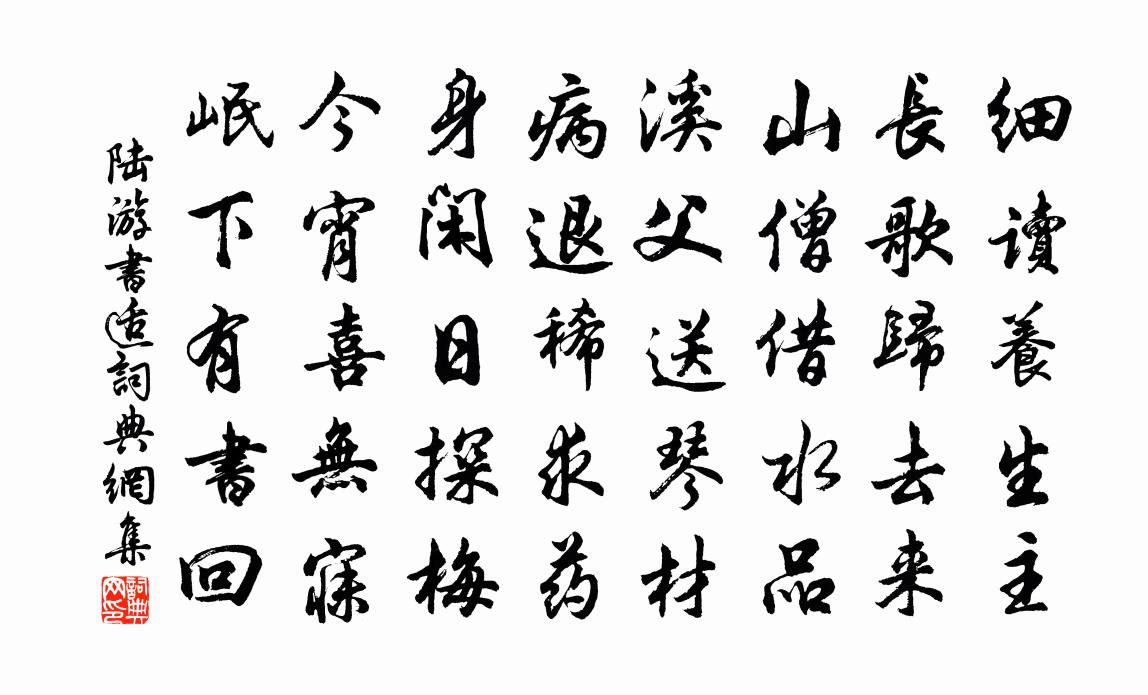 細讀養生主
長歌歸去来
山僧借水品
溪父送琴材
病退稀求药
身閑日探梅
今宵喜無寐
岷下有書回
陸游書适詞典網集
詞典网印